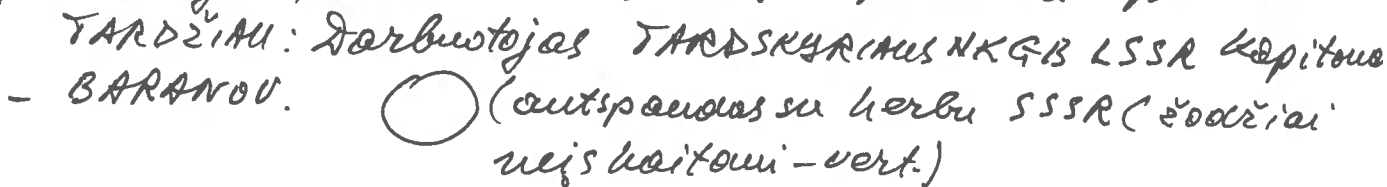 TARDŽIAU: Darbuotojas TARDSKYRIAUS NKGB LSSR Kapitonas
- BARANOV. (antspaudas su herbu SSSR (žodžiai
neįskaitomi - vert.)